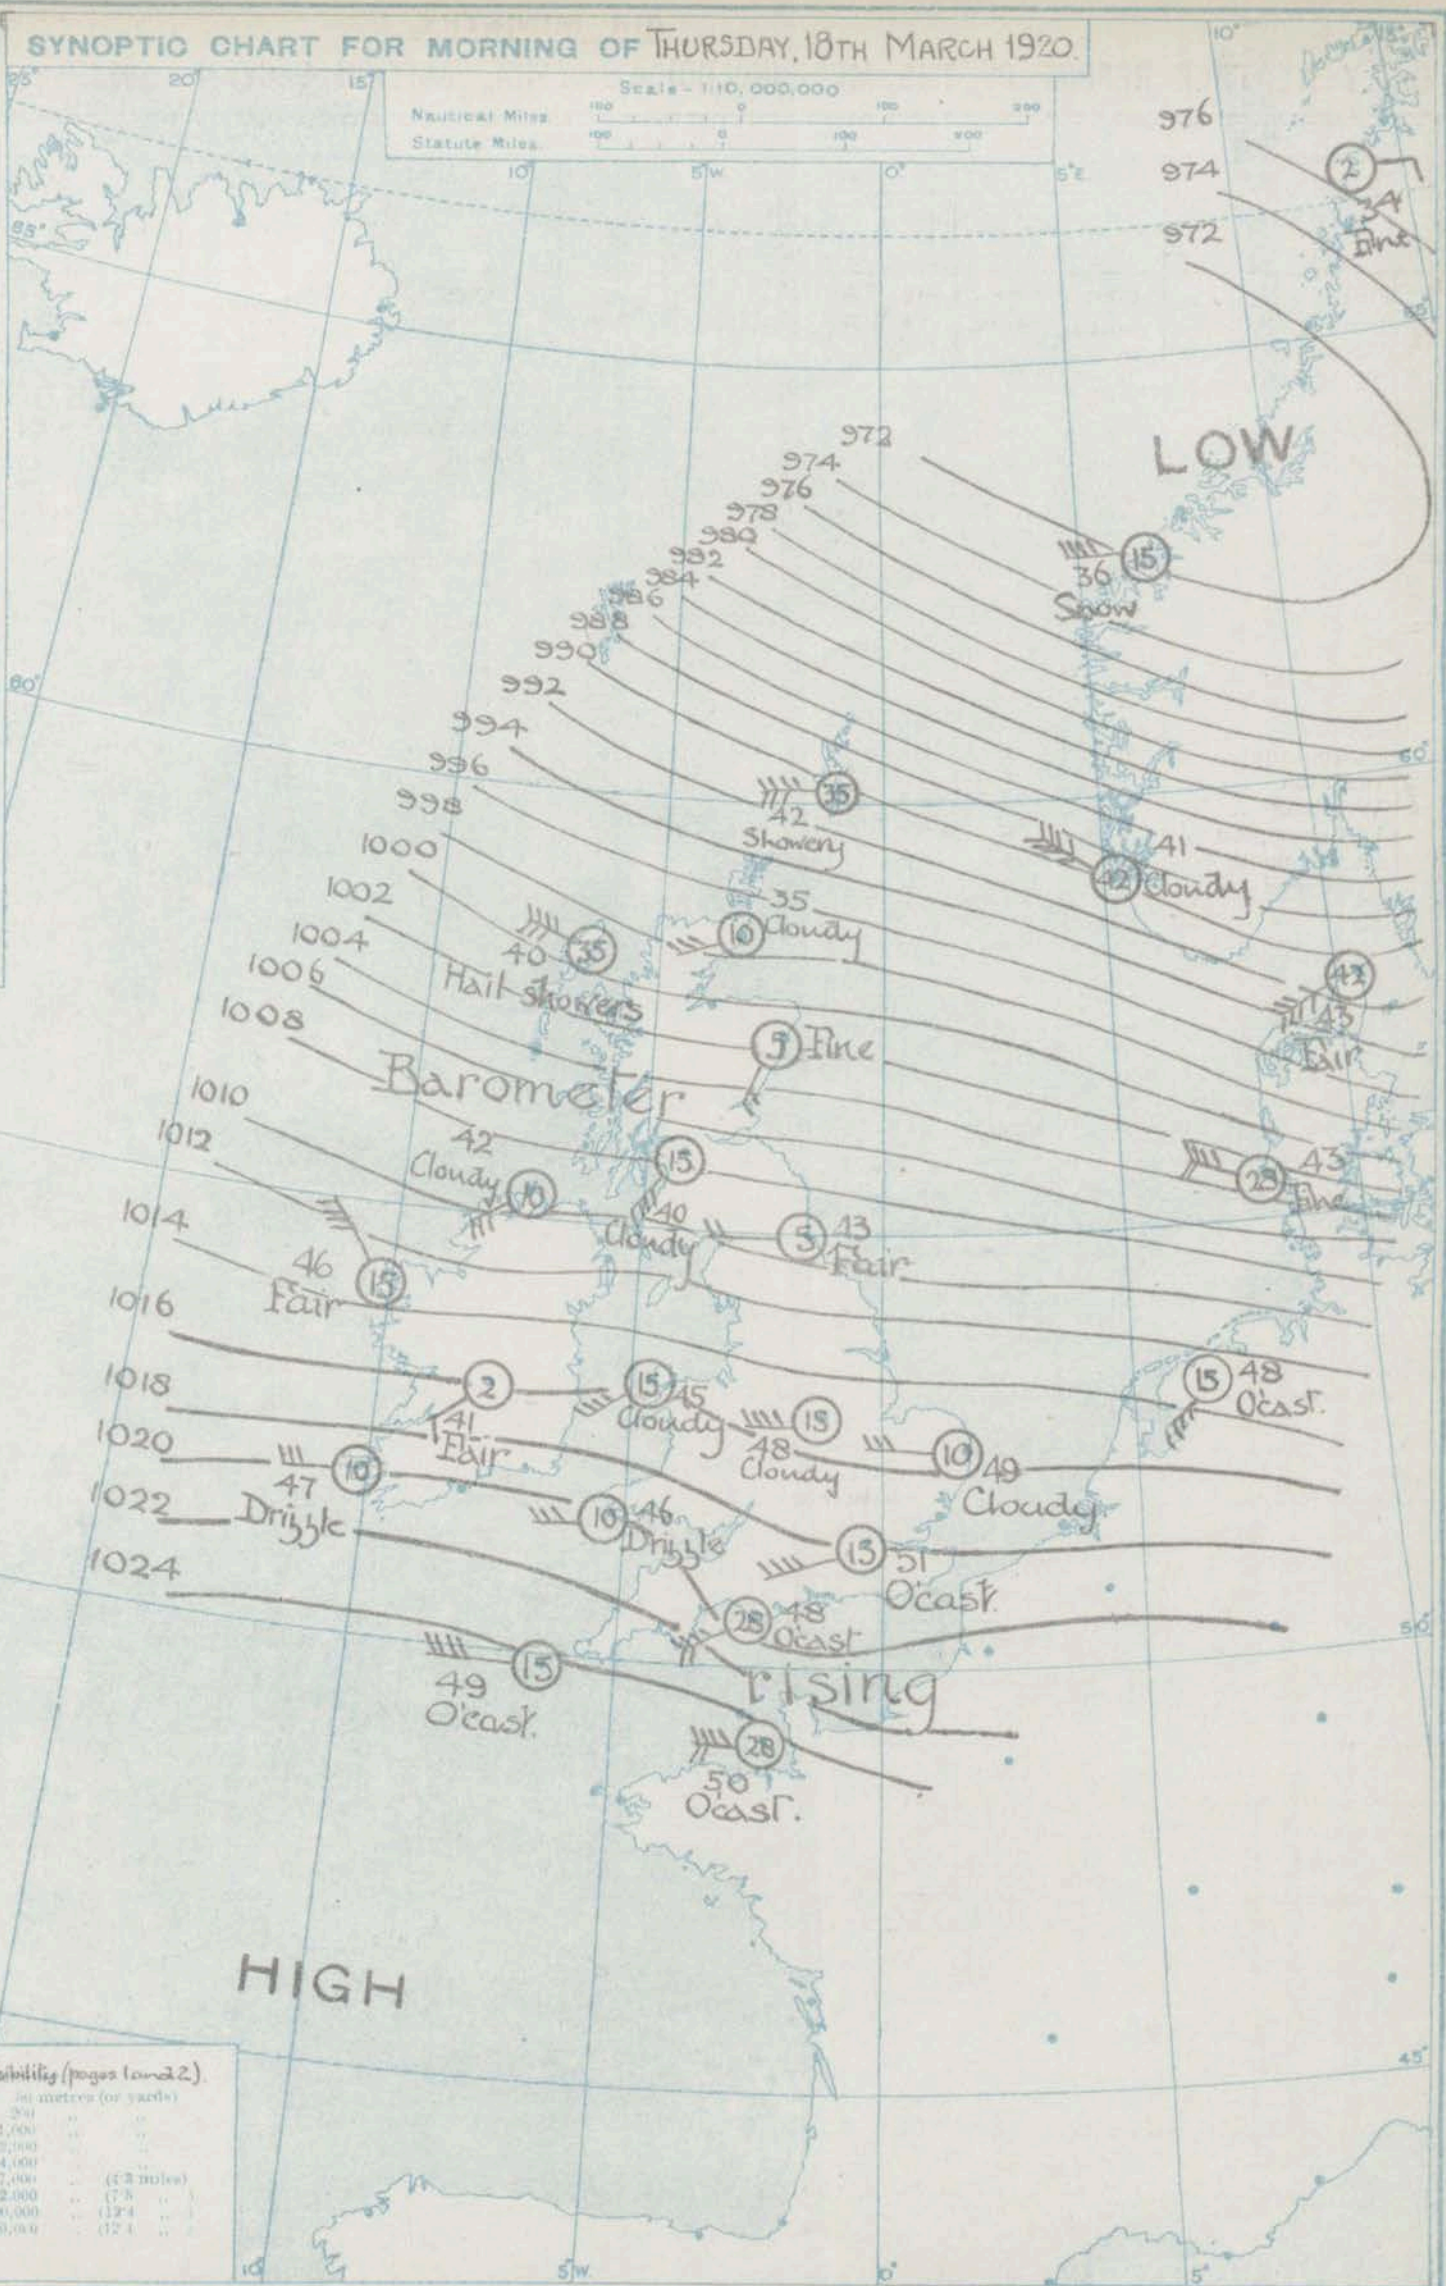 SYNOPTIC CHART FOR MORNING OF THURSDAY, 18TH MARCH 1920.
Scale - 1:10,000,000
Nautical Miles 100 0 100 200
Statute Miles 100 0 100 200
25° 20° 15° 10° 5°W 0° 5°E 10° 15°
65°
65°
976
974
972
2
4
Fine
LOW
972
974
976
978
980
982
984
986
988
990
992
994
996
998
1000
1002
1004
1006
1008
1010
1012
1014
1016
1018
1020
1022
1024
15
36
Snow
60°
60°
35
42
Showery
42
41
Cloudy
35
40
Hail showers
10
35
Cloudy
42
43
Fair
5
Fine
Barometer
42
Cloudy
10
15
40
Cloudy
28
43
Fine
5
43
Fair
15
46
Fair
2
41
Fair
15
45
Cloudy
15
48
Cloudy
10
49
Cloudy
15
48
O'cast.
10
47
Drizzle
10
46
Drizzle
15
51
O'cast.
28
48
O'cast
50°
15
49
O'cast.
rising
28
50
O'cast.
HIGH
45°
(pages 1 and 2).
metres (or yards)
10° 5°W 0° 5°